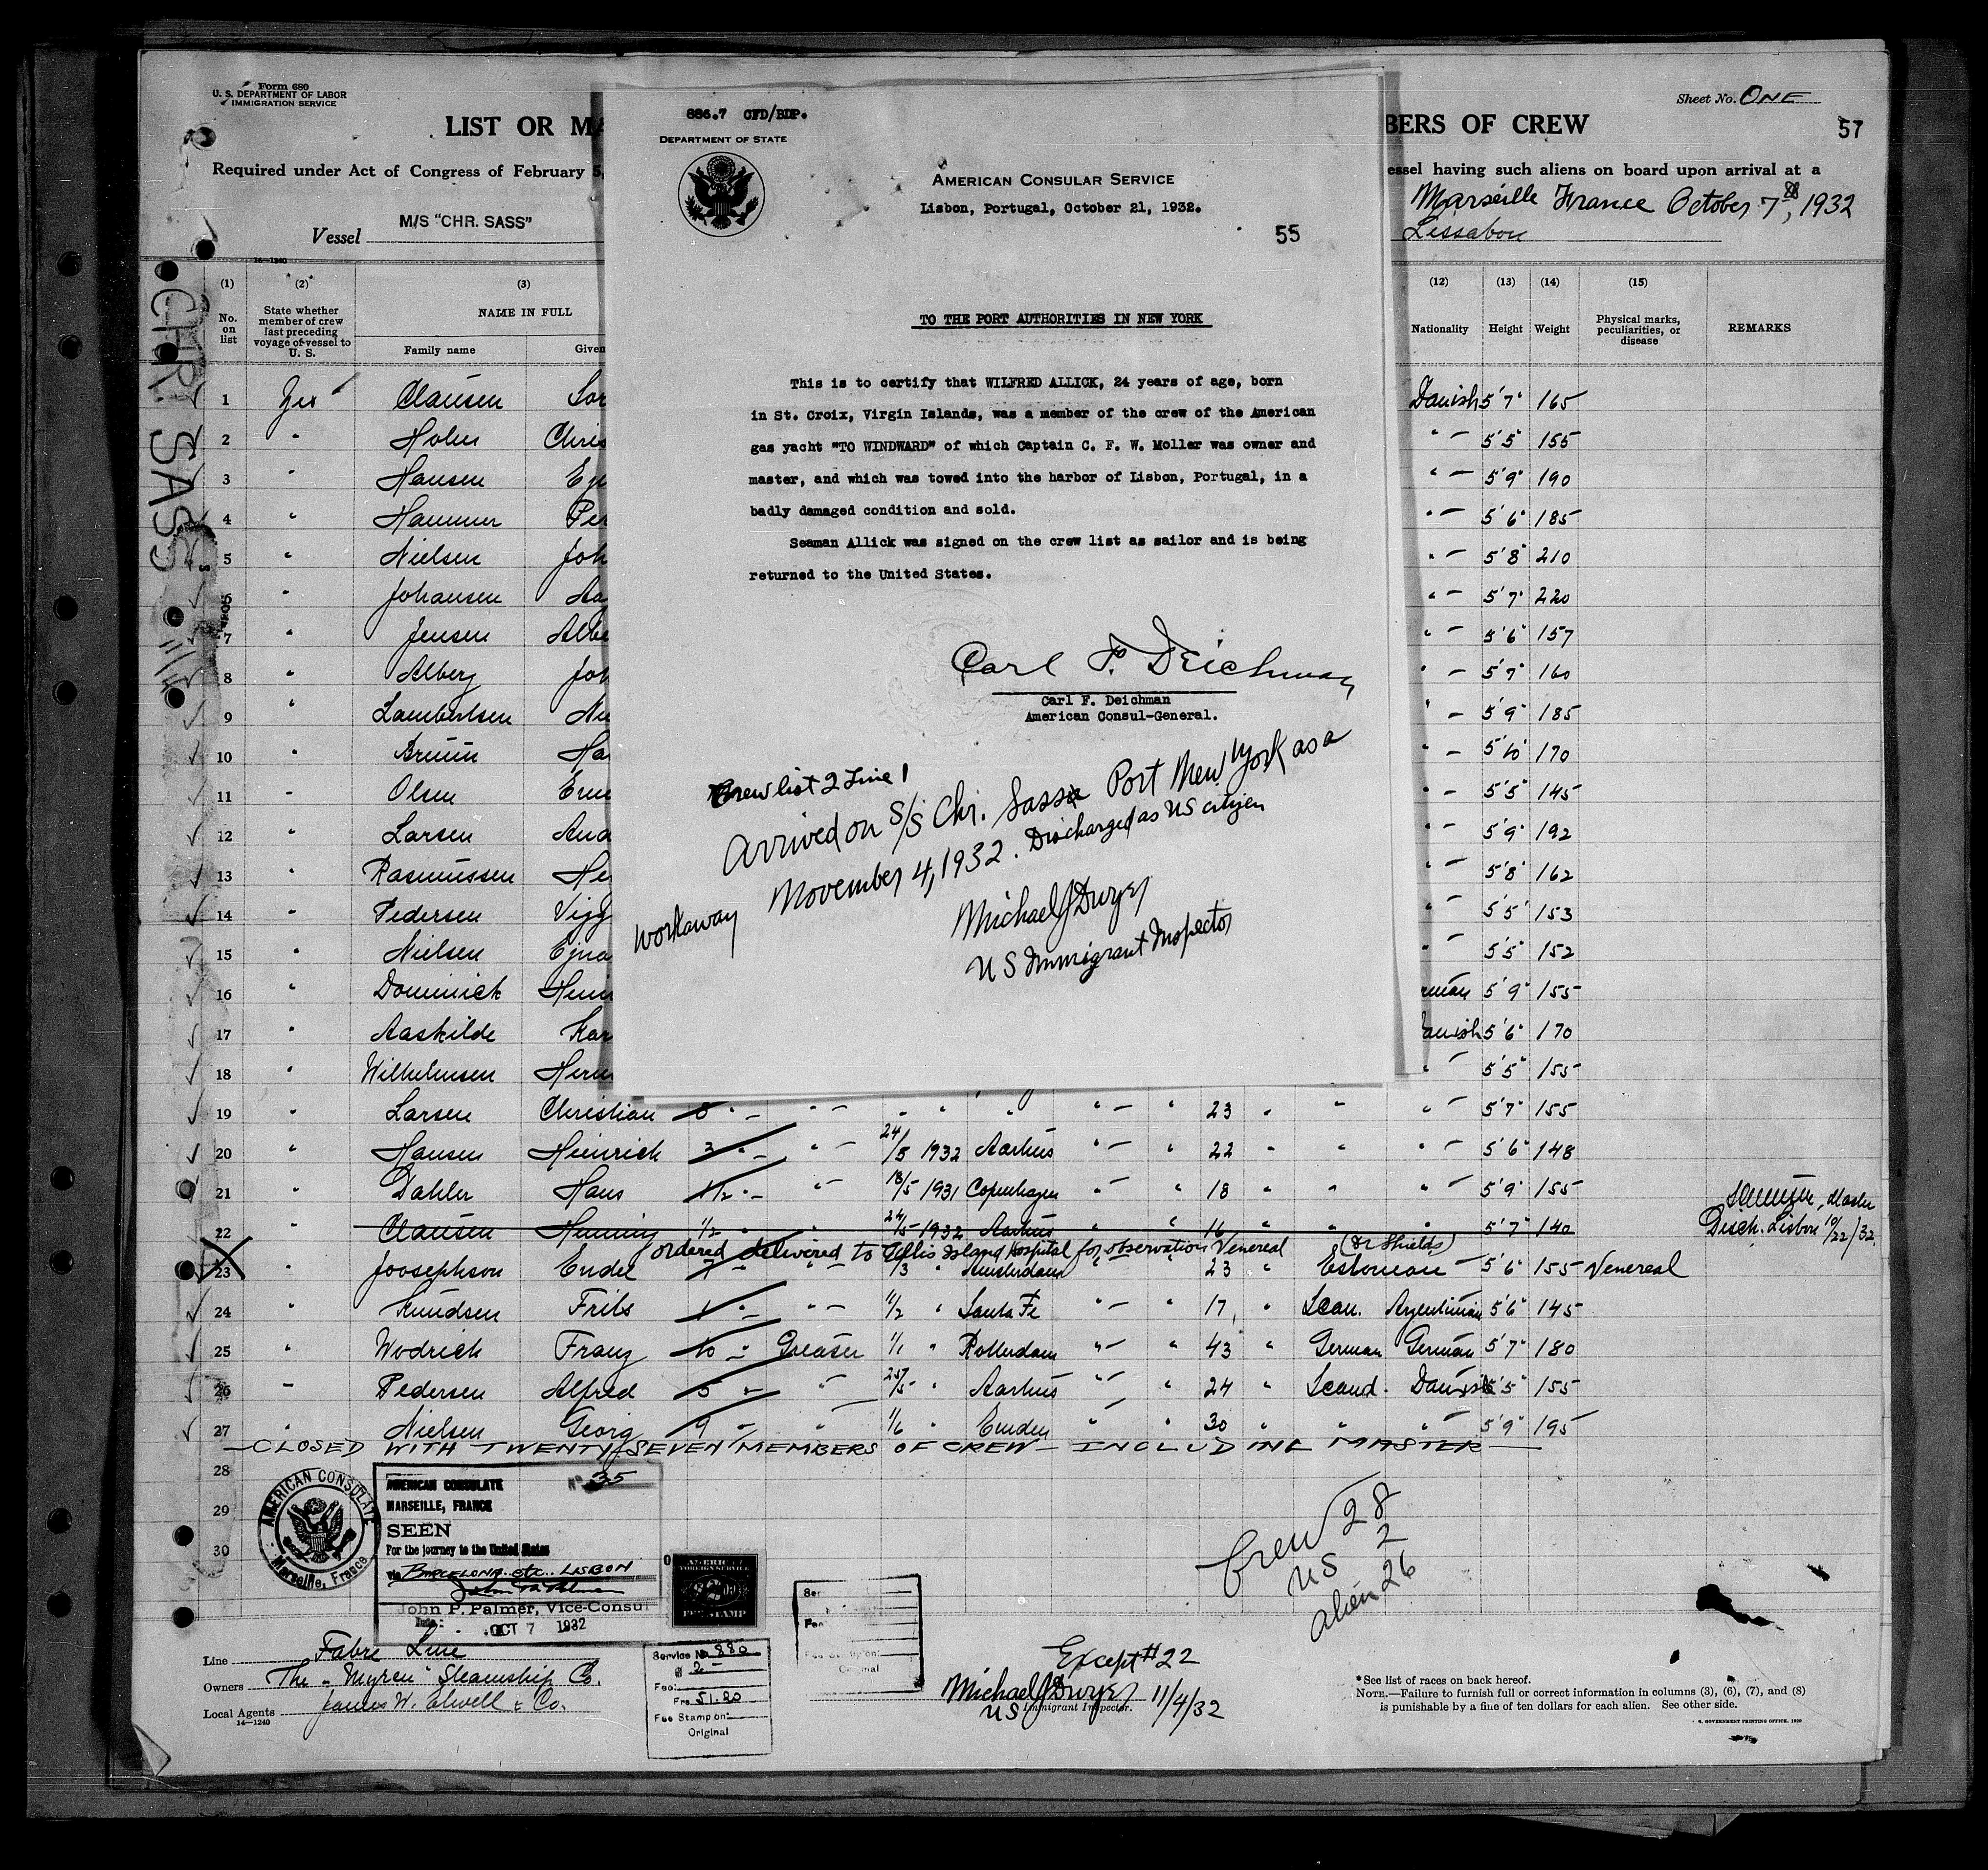 Form 680
U. S. DEPARTMENT OF LABOR
IMMIGRATION SERVICE
Sheet No. ONE
LIST OR MA
BERS OF CREW
57
Required under Act of Congress of February 5,
essel having such aliens on board upon arrival at a
Vessel M/S "CHR. SASS"
Marseille France October 7th, 1932
Lissabon
CHR. SASS
11/4
886.7 CFD/BDP.
DEPARTMENT OF STATE
AMERICAN CONSULAR SERVICE
Lisbon, Portugal, October 21, 1932.
55
TO THE PORT AUTHORITIES IN NEW YORK
This is to certify that WILFRED ALLICK, 24 years of age, born
in St. Croix, Virgin Islands, was a member of the crew of the American
gas yacht "TO WINDWARD" of which Captain C. F. W. Moller was owner and
master, and which was towed into the harbor of Lisbon, Portugal, in a
badly damaged condition and sold.
Seaman Allick was signed on the crew list as sailor and is being
returned to the United States.
Carl F. Deichman
Carl F. Deichman
American Consul-General.
Crew list 2 Line 1
Arrived on S/S Chr. Sass Port New York as a
workaway November 4, 1932. Discharged as US citizen
Michael J Dwyer
US Immigrant Inspector
16—1240
(1) (2)* (3) (12) (13) (14) (15)
No. on list
State whether member of crew last preceding voyage of vessel to U. S.
NAME IN FULL
Family name Given
Nationality Height Weight Physical marks, peculiarities, or disease REMARKS
1 Yes Clausen Sor Danish 5'7" 165
2 " Holm Chris " – 5'5" 155
3 " Hansen Ejn " – 5'9" 190
4 " Hammer Per " – 5'6" 185
5 " Nielsen Joh " – 5'8" 210
6 " Johansen Aa " – 5'7" 220
7 " Jensen Albe " – 5'6" 157
8 " Alberg Joh " – 5'7" 160
9 " Lambertsen Nie " – 5'9" 185
10 " Bruun Ha " – 5'10" 170
11 " Olsen Erne " – 5'5" 145
12 " Larsen And " – 5'9" 192
13 " Rasmussen He " – 5'8" 162
14 " Pedersen Vigg " – 5'5" 153
15 " Nielsen Ejna " – 5'5" 152
16 " Dominick Hein rman 5'9" 155
17 " Aaskilde Kar anish 5'6" 170
18 " Wilhelmsen Herm " – 5'5" 155
19 " Larsen Christian 8 " – " – " " " " – " 23 " " " – 5'7" 155
20 " Hansen Heinrich 3 " – " – 24/8 1932 Aarhus " – " 22 " " " – 5'6" 148
21 " Dahler Hans 1 1/2 " – " – 18/5 1931 Copenhagen " – " 18 " " " – 5'9" 155
22 " Clausen Henning 1/2 " " 24/5 1932 Aarhus " " 16 " " " 5'7" 140
Master
Disch. Lisbon 10/22/32
ordered delivered to Ellis Island Hospital for observation Venereal (Dr Shields)
23 " Joosephson Endel 7 " " – 1/3 " Amsterdam " – " 23 " Estonian – 5'6" 155 Venereal
24 " Knudsen Frits 1 " " – 11/2 " Santa Fe " – " 17 " Scan. Argentinian 5'6" 145
25 " Wodrich Franz 10 " Greaser 1/1 " Rotterdam " – " 43 " German German 5'7" 180
26 " Pedersen Alfred 5 " " – 25/5 " Aarhus " – " 24 " Scand. Danish 5'5" 155
27 " Nielsen Georg 9 " – " – 1/6 " Emden " – " 30 " " " – 5'9" 195
CLOSED WITH TWENTY SEVEN MEMBERS OF CREW – INCLUDING MASTER
28
29
30
AMERICAN CONSULATE
Marseille, France
AMERICAN CONSULATE
No 35
MARSEILLE, FRANCE
SEEN
For the journey to the United States
via BARCELONA etc. LISBON
John P. Palmer
John P. Palmer, Vice-Consul
Date: OCT 7 1932
AMERICAN
FOREIGN SERVICE
$2.00
FEE STAMP
Crew 28
US 2
Alien 26
Service No 880
$ 2 –
Fee:
Frs 51.20
Fee Stamp on:
Original
Ser
Fee
Fee Stamp on:
Original
Line Fabre Line
Owners The "Myren" Steamship Co.
Local Agents James W. Elwell & Co.
14—1240
Except #22
Michael J Dwyer 11/4/32
US Immigrant Inspector.
*See list of races on back hereof.
NOTE.—Failure to furnish full or correct information in columns (3), (6), (7), and (8)
is punishable by a fine of ten dollars for each alien. See other side.
GOVERNMENT PRINTING OFFICE. 1930